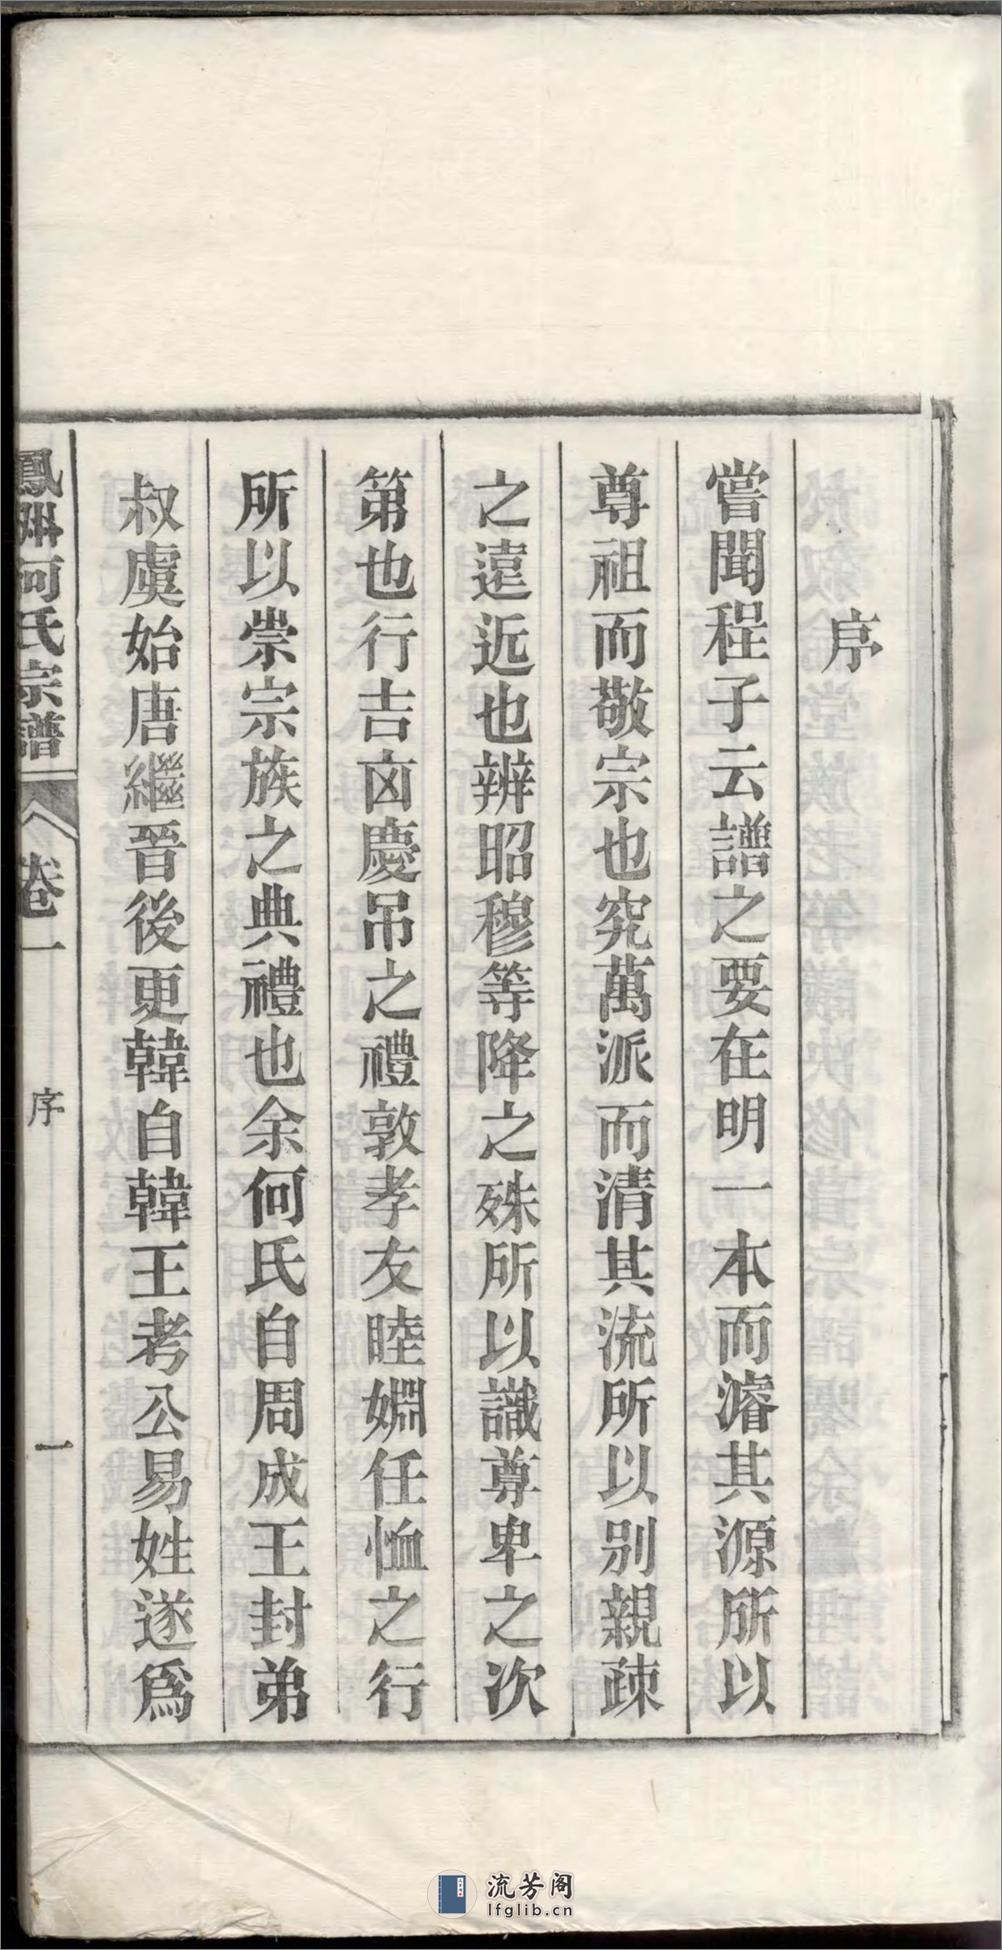 序
嘗聞程子云譜之要在明一本而濬其源所以
尊祖而敬宗也究萬派而清其流所以別親疎
之遠近也辨昭穆等降之殊所以識尊卑之次
第也行吉凶慶吊之禮敦孝友睦婣任恤之行
所以崇宗族之典禮也余何氏自周成王封弟
叔虞始唐繼晉後更韓自韓王考公易姓遂爲
鳳州何氏宗譜
卷一
序
一
流芳阁
lfglib.cn